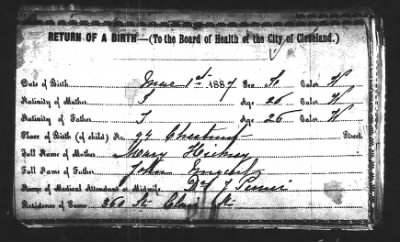 RETURN OF A BIRTH—(To the Board of Health of the City of Cleveland.)
Date of Birth June 1st 1887 Sex F. Color W
Nativity of Mother Age 26 Color W
Nativity of Father Age 26 Color W
Place of Birth (of child) No. 94 Chestnut Street
Full Name of Mother Mary Hickey
Full Name of Father John
Name of Medical Attendant or Midwife Dr J
Residence of Same 360 St Clair St